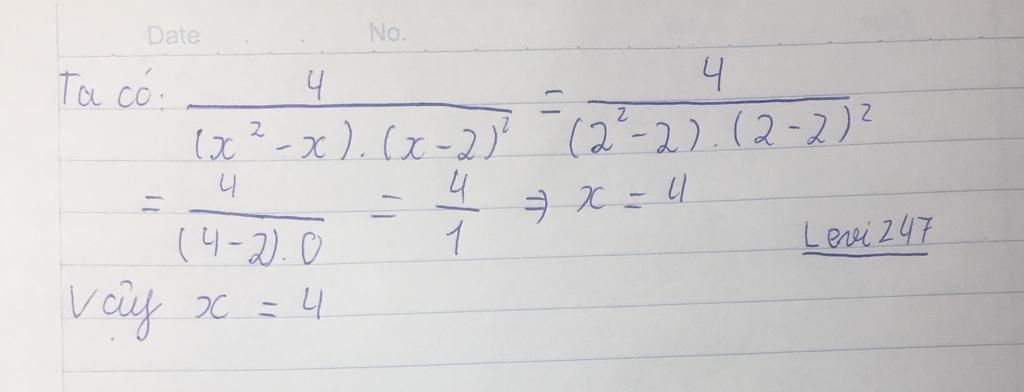 Date No.
Ta có: 4/((x² - x).(x - 2)²) = 4/((2² - 2).(2 - 2)²)
= 4/((4 - 2).0) = 4/1 ⇒ x = 4
Levi247
Vậy x = 4